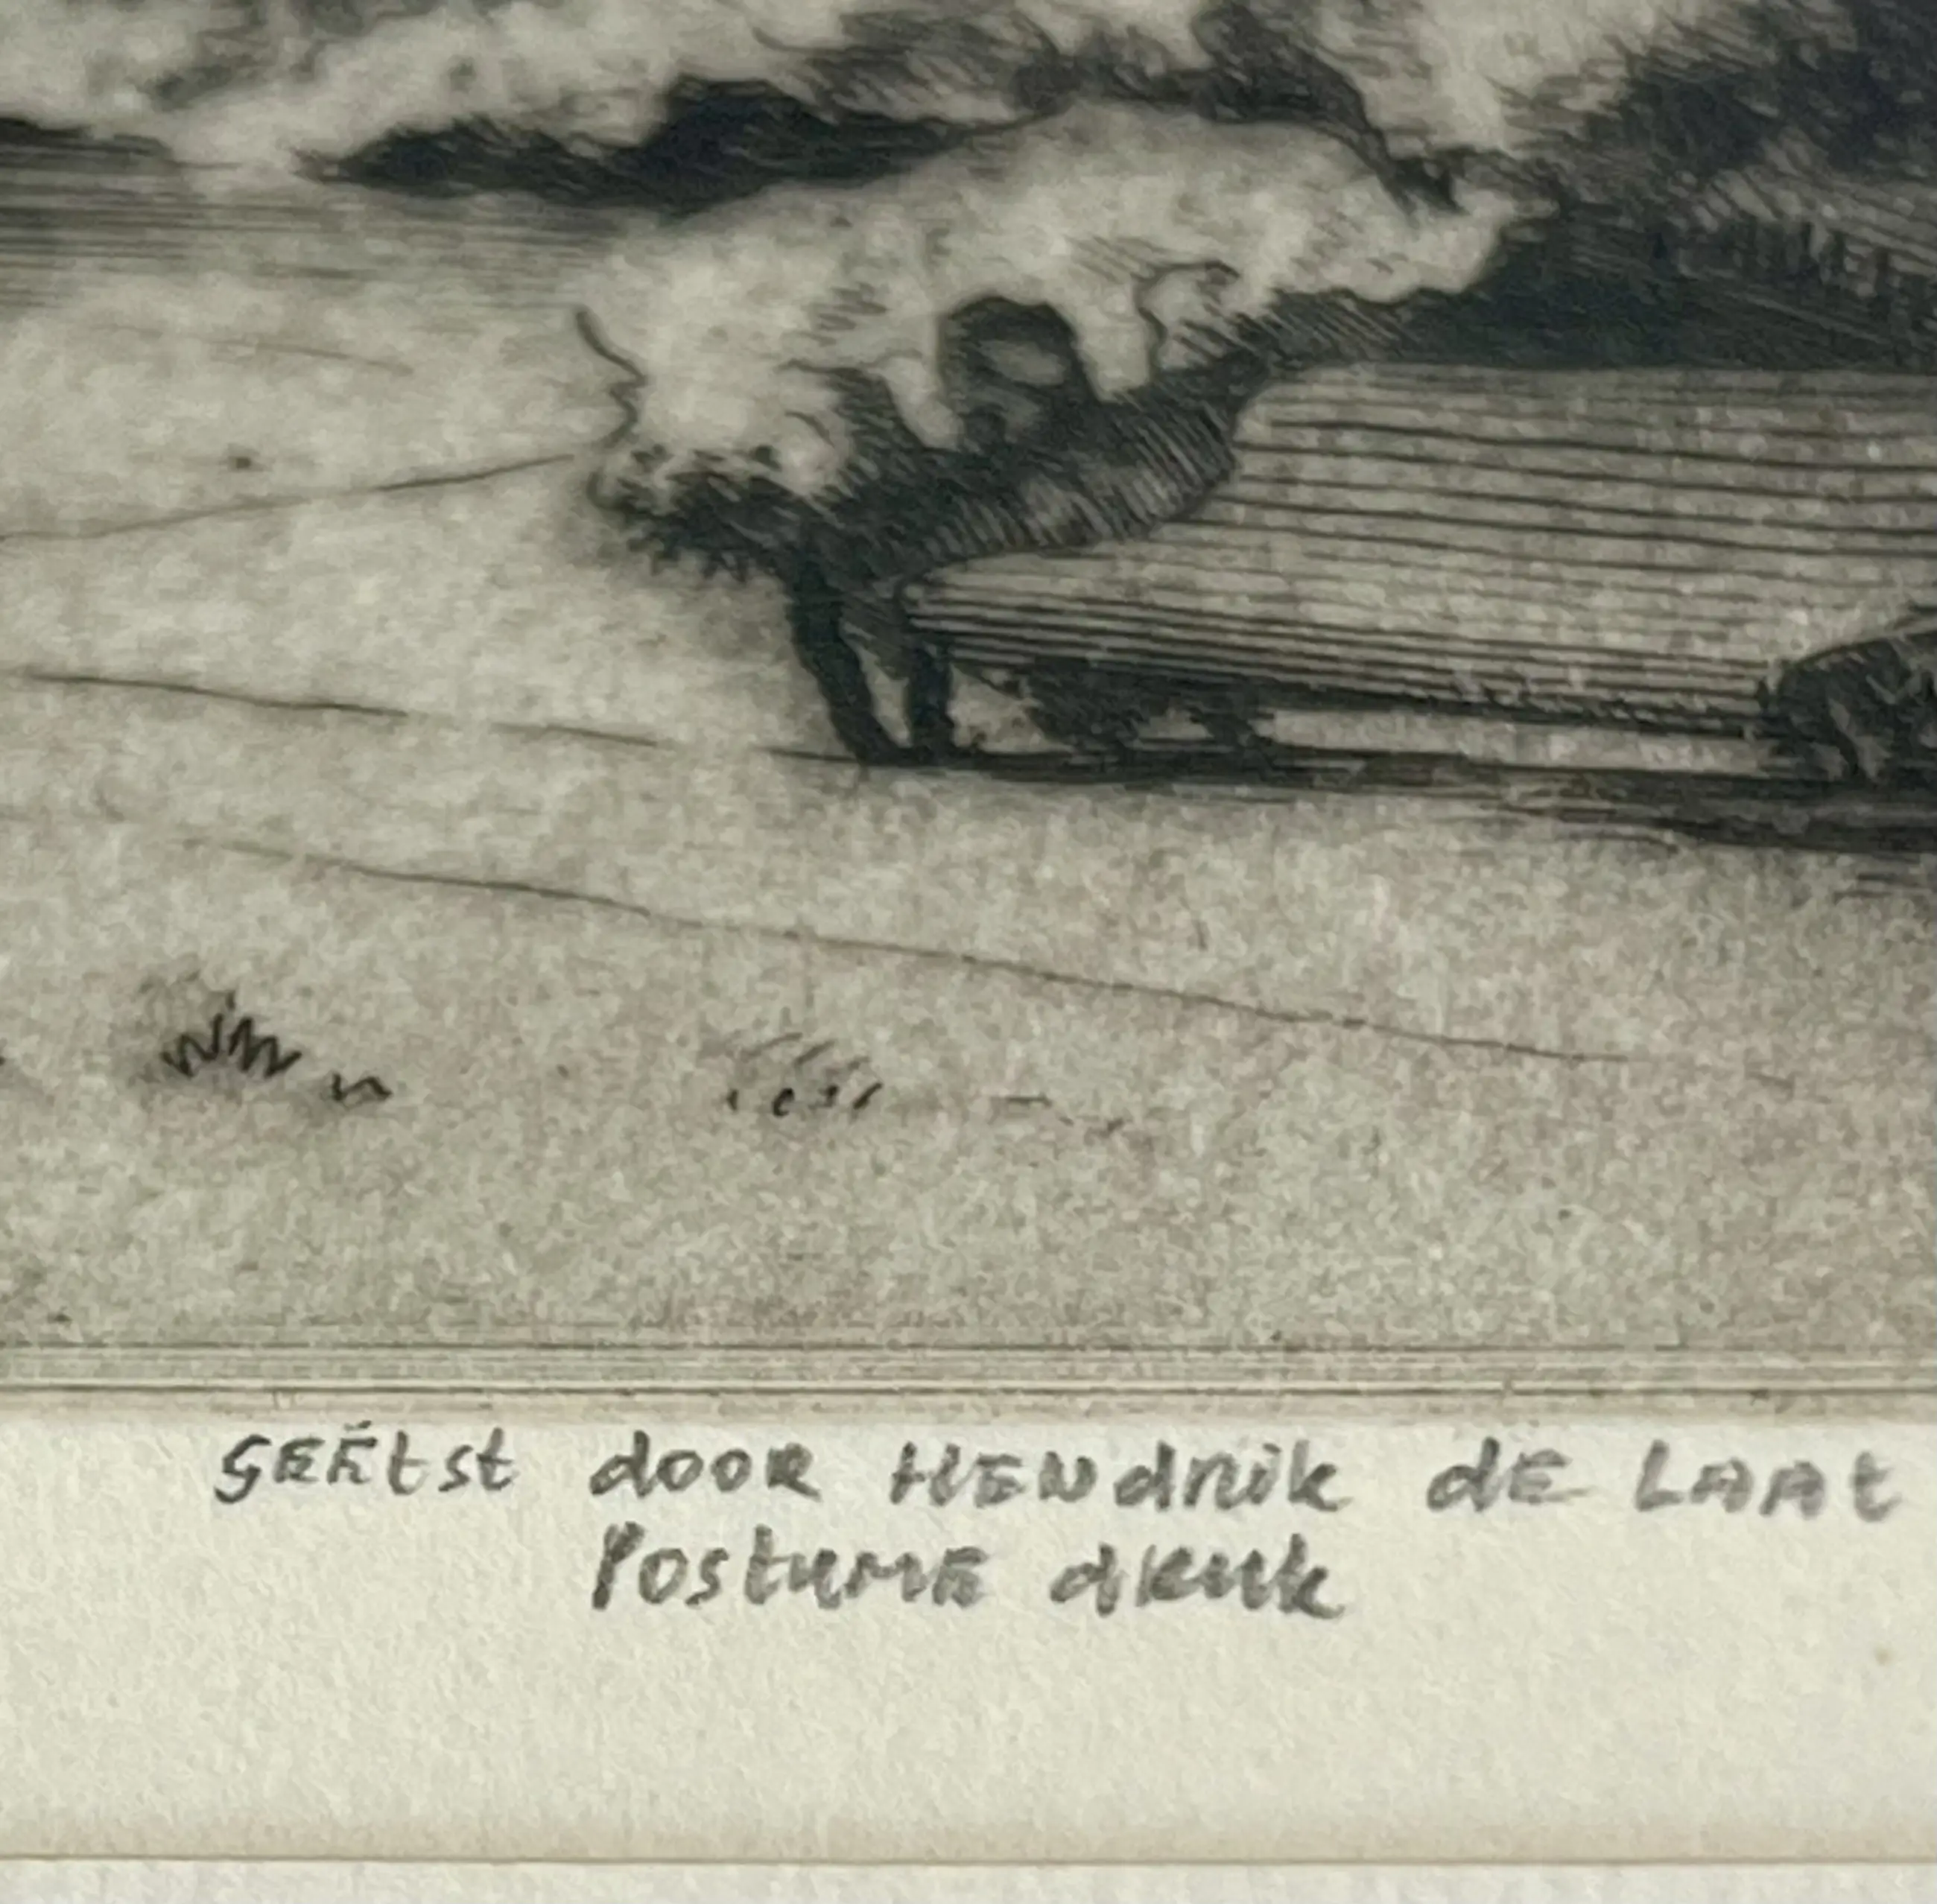 GEËtst dooR HENdRik dE LAAt
PostumE dRuk